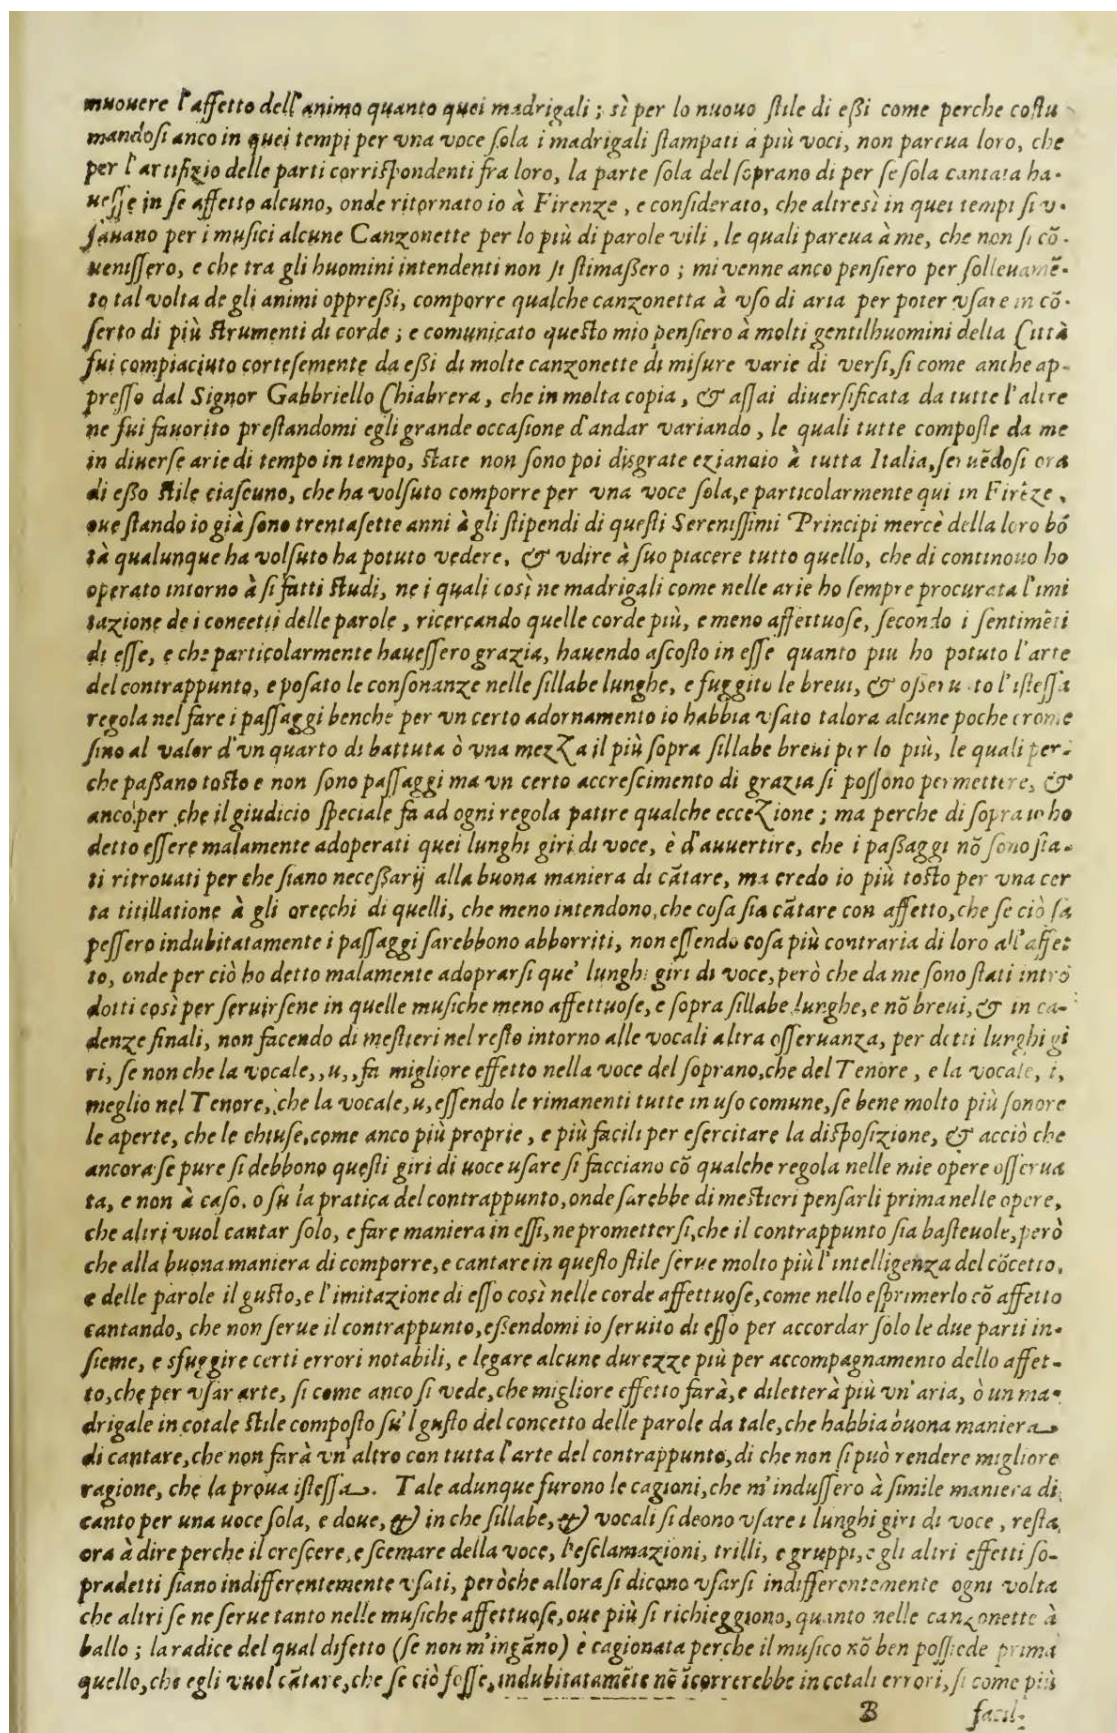 muouere l'affetto dell'animo quanto quei madrigali; sì per lo nuouo ſtile di eßi come perche coſtu
mandoſi anco in quei tempi per vna voce ſola i madrigali ſtampati à più voci, non pareua loro, che
per l'artifizio delle parti corriſpondenti fra loro, la parte ſola del ſoprano di per ſe ſola cantata ha-
ueſſe in ſe affetto alcuno, onde ritornato io à Firenze, e conſiderato, che altresì in quei tempi ſi v-
ſauano per i muſici alcune Canzonette per lo più di parole vili, le quali pareua à me, che non ſi cō-
ueniſſero, e che tra gli huomini intendenti non ſi ſtimaßero; mi venne anco penſiero per ſolleuamē-
to tal volta de gli animi oppreßi, comporre qualche canzonetta à vſo di aria per poter vſare in cō-
ſerto di più ſtrumenti di corde; e comunicato queſto mio penſiero à molti gentilhuomini della Città
fui compiaciuto corteſemente da eßi di molte canzonette di miſure varie di verſi, ſi come anche ap-
preſſo dal Signor Gabbriello Chiabrera, che in molta copia, & aſſai diuerſificata da tutte l'altre
ne fui fauorito preſtandomi egli grande occaſione d'andar variando, le quali tutte compoſte da me
in diuerſe arie di tempo in tempo, ſtate non ſono poi diſgrate eziandio à tutta Italia, ſeruēdoſi ora
di eßo ſtile ciaſcuno, che ha volſuto comporre per vna voce ſola, e particolarmente qui in Firēze,
oue ſtando io già ſono trentaſette anni à gli ſtipendi di queſti Sereniſſimi Principi mercè della loro bō
tà qualunque ha volſuto ha potuto vedere, & vdire à ſuo piacere tutto quello, che di continouo ho
operato intorno à ſi fatti ſtudi, ne i quali così ne madrigali come nelle arie ho ſempre procurata l'imi
tazione de i concetti delle parole, ricercando quelle corde più, e meno affettuoſe, ſecondo i ſentimēti
di eſſe, e che particolarmente haueſſero grazia, hauendo aſcoſto in eſſe quanto piu ho potuto l'arte
del contrappunto, e poſato le conſonanze nelle ſillabe lunghe, e fuggito le breui, & oſſeruato l'iſteſſa
regola nel fare i paſſaggi benche per vn certo adornamento io habbia vſato talora alcune poche crome
ſino al valor d'vn quarto di battuta ò vna mezza il più ſopra ſillabe breui per lo più, le quali per-
che paßano toſto e non ſono paſſaggi ma vn certo accreſcimento di grazia ſi poſſono permettere, &
anco per che il giudicio ſpeciale fa ad ogni regola patire qualche eccezione; ma perche di ſopra io ho
detto eſſere malamente adoperati quei lunghi giri di voce, è d'auuertire, che i paßaggi nō ſono ſta-
ti ritrouati per che ſiano neceßarij alla buona maniera di cātare, ma credo io più toſto per vna cer
ta titillatione à gli orecchi di quelli, che meno intendono, che coſa ſia cātare con affetto, che ſe ciò ſa
peſſero indubitatamente i paſſaggi ſarebbono abborriti, non eſſendo coſa più contraria di loro all'affet
to, onde per ciò ho detto malamente adoprarſi que' lunghi giri di voce, però che da me ſono ſtati intro
dotti così per ſeruirſene in quelle muſiche meno affettuoſe, e ſopra ſillabe lunghe, e nō breui, & in ca-
denze finali, non facendo di meſtieri nel reſto intorno alle vocali altra oſſeruanza, per detti lunghi gi
ri, ſe non che la vocale,,u,,fa migliore effetto nella voce del ſoprano, che del Tenore, e la vocale, i,
meglio nel Tenore, che la vocale, u, eſſendo le rimanenti tutte in uſo comune, ſe bene molto più ſonore
le aperte, che le chiuſe, come anco più proprie, e più facili per eſercitare la diſpoſizione, & acciò che
ancora ſe pure ſi debbono queſti giri di uoce uſare ſi facciano cō qualche regola nelle mie opere oſſerua
ta, e non à caſo, o ſu la pratica del contrappunto, onde ſarebbe di meſtieri penſarli prima nelle opere,
che altri vuol cantar ſolo, e fare maniera in eſſi, ne prometterſi, che il contrappunto ſia baſteuole, però
che alla buona maniera di comporre, e cantare in queſto ſtile ſerue molto più l'intelligenza del cōcetto,
e delle parole il guſto, e l'imitazione di eſſo così nelle corde affettuoſe, come nello eſprimerlo cō affetto
cantando, che non ſerue il contrappunto, eßendomi io ſeruito di eſſo per accordar ſolo le due parti in-
ſieme, e sfuggire certi errori notabili, e legare alcune durezze più per accompagnamento dello affet-
to, che per vſar arte, ſi come anco ſi vede, che migliore effetto farà, e diletterà più vn'aria, ò un ma-
drigale in cotale ſtile compoſto ſu'l guſto del concetto delle parole da tale, che habbia buona maniera
di cantare, che non farà vn'altro con tutta l'arte del contrappunto, di che non ſi può rendere migliore
ragione, che la proua iſteſſa. Tale adunque furono le cagioni, che m'induſſero à ſimile maniera di
canto per una uoce ſola, e doue, & in che ſillabe, & vocali ſi deono vſare i lunghi giri di voce, reſta
ora à dire perche il creſcere, e ſcemare della voce, l'eſclamazioni, trilli, e gruppi, e gli altri effetti ſo-
pradetti ſiano indifferentemente vſati, peròche allora ſi dicono vſarſi indifferentemente ogni volta
che altri ſe ne ſerue tanto nelle muſiche affettuoſe, oue più ſi richieggiono, quanto nelle canzonette à
ballo; la radice del qual difetto (ſe non m'ingāno) è cagionata perche il muſico nō ben poſſiede prima
quello, che egli vuol cātare, che ſe ciò foſſe, indubitatamēte nō īcorrerebbe in cotali errori, ſi come più
B facil-